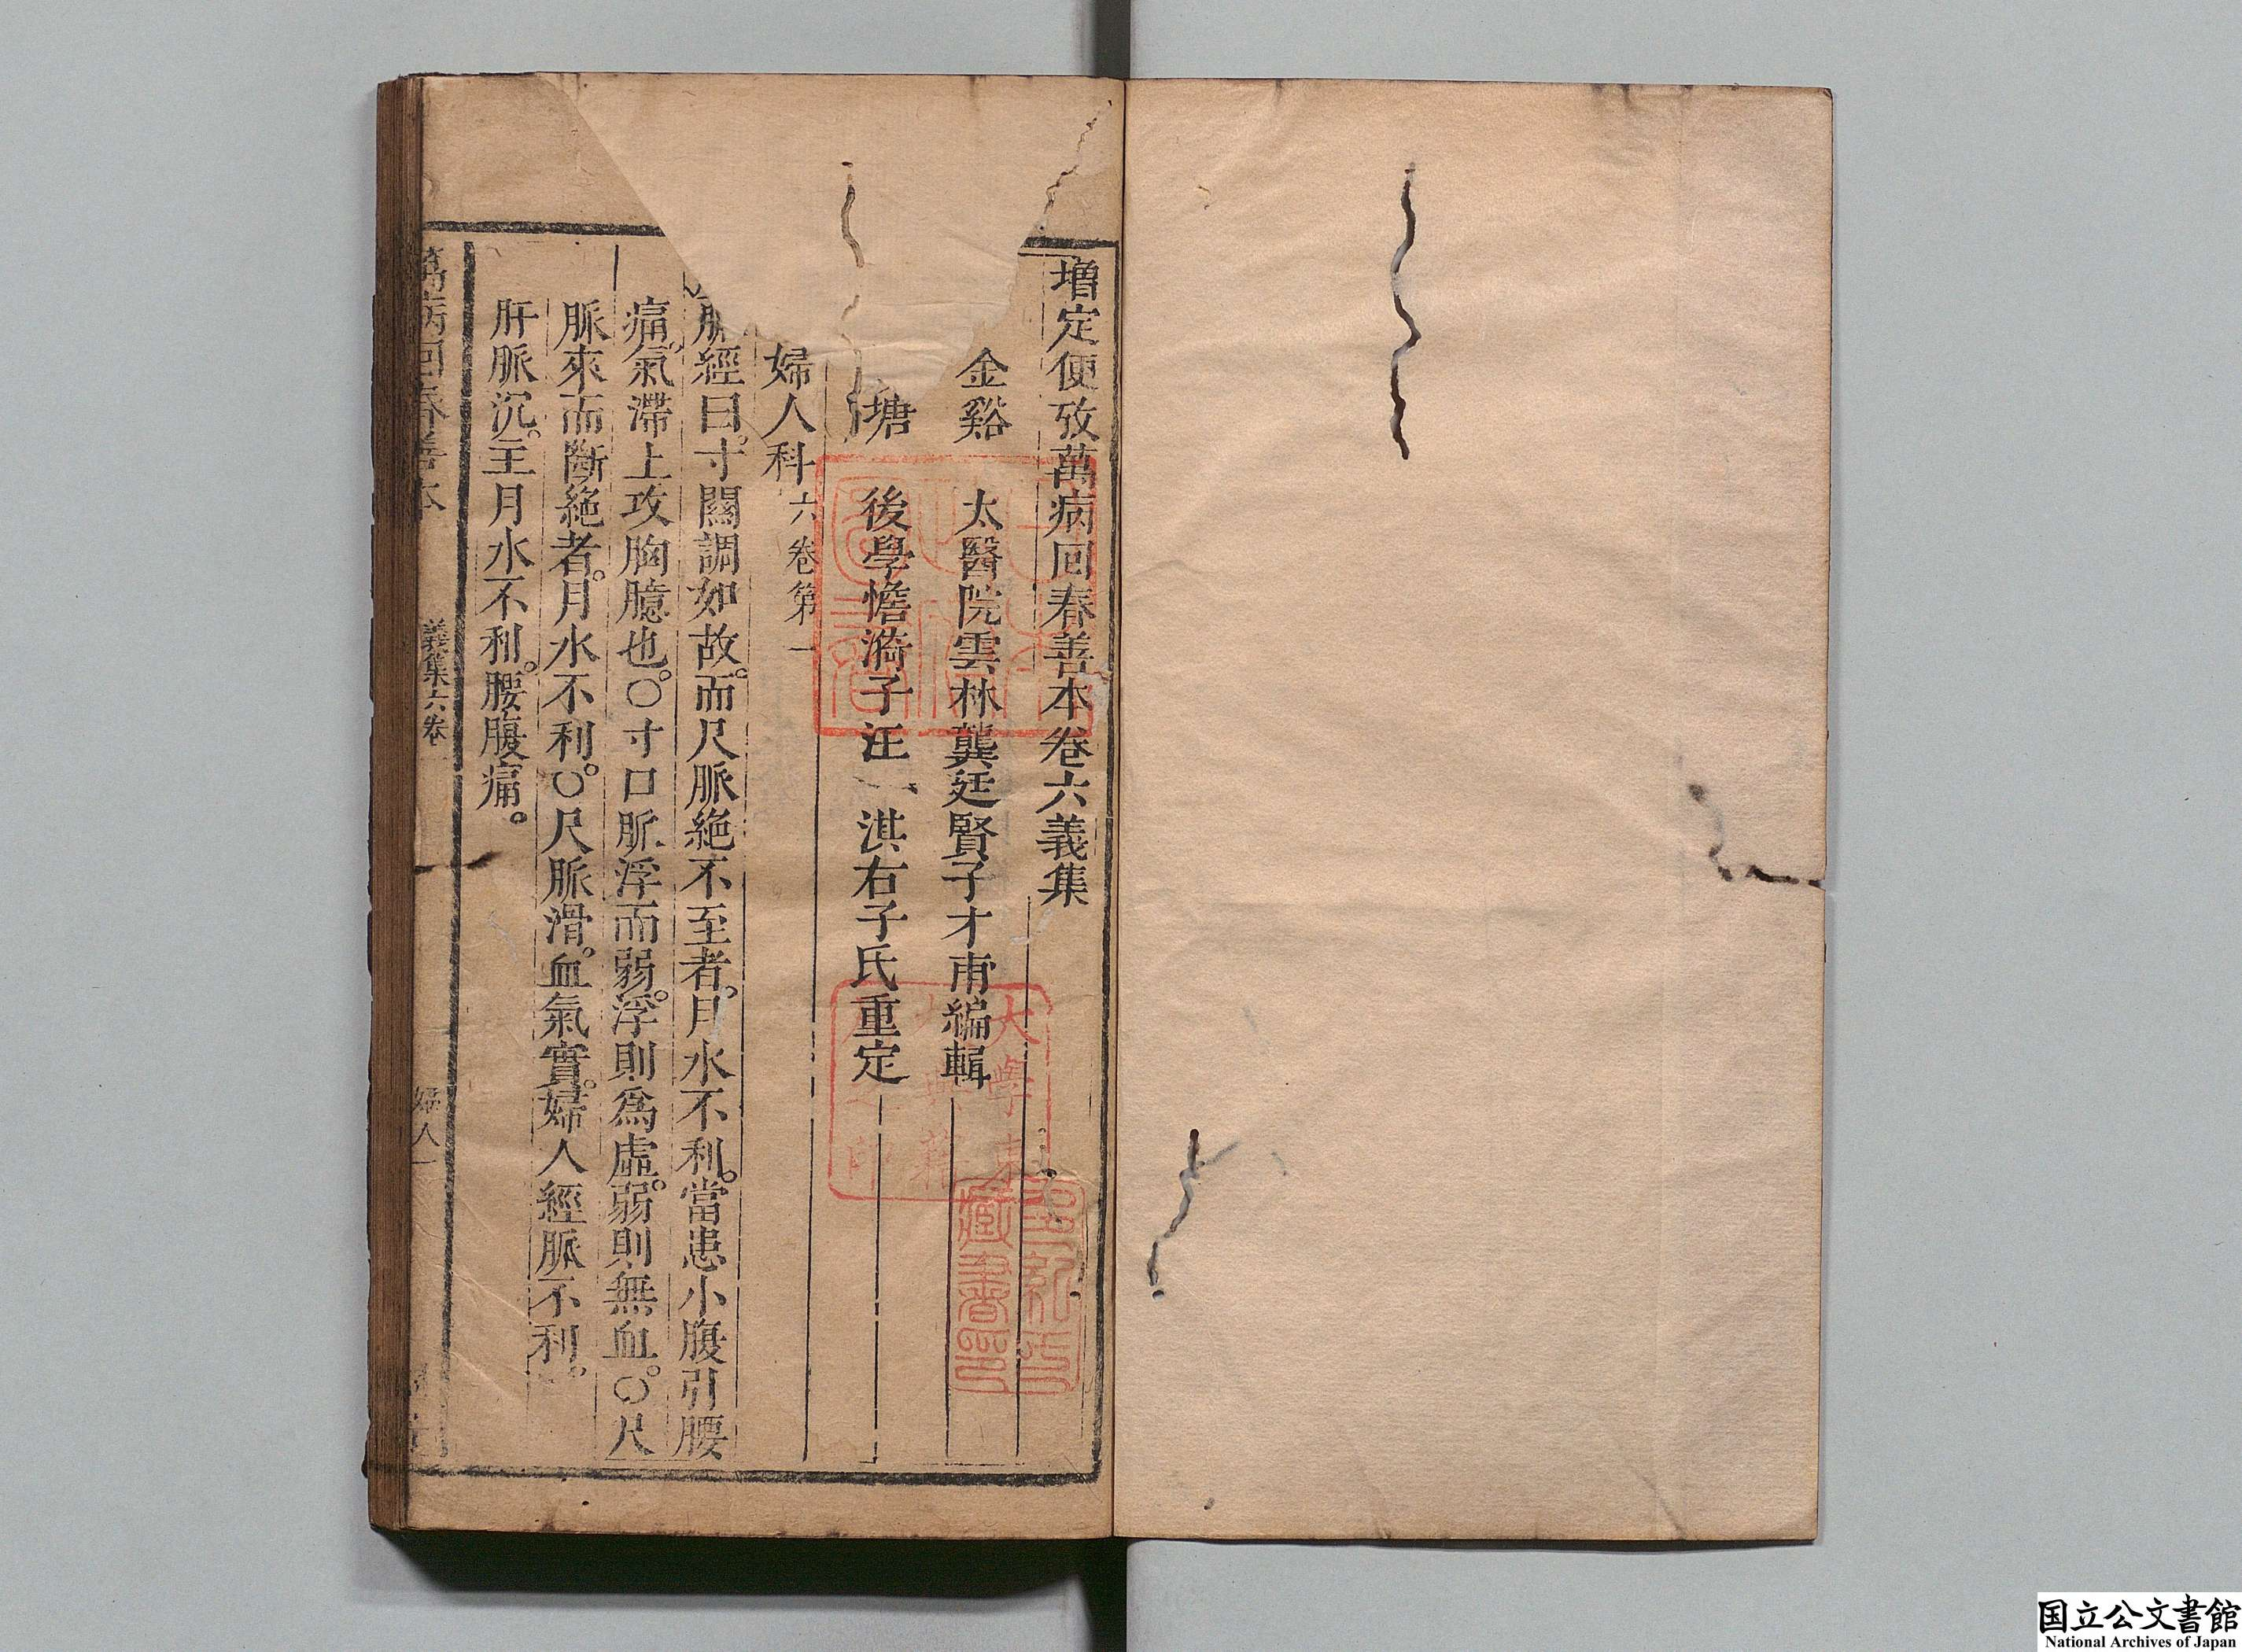 增定便攷萬病回春善本卷六義集
金谿　太醫院雲林龔廷賢子才甫編輯
塘　後學憺漪子汪　淇右子氏重定
婦人科六卷第一
脈經曰。寸關調如故。而尺脈絕不至者。月水不利。當患小腹引腰
痛。氣滯上攻胸臆也。〇寸口脈浮而弱。浮則爲虛。弱則無血。〇尺
脈來而斷絕者。月水不利。〇尺脈滑。血氣實。婦人經脈不利。
肝脈沉。主月水不利。腰腹痛。
萬病回春善本
義集六卷
婦人一
大學東
校典籍
之印
藏書印
国立公文書館
National Archives of Japan